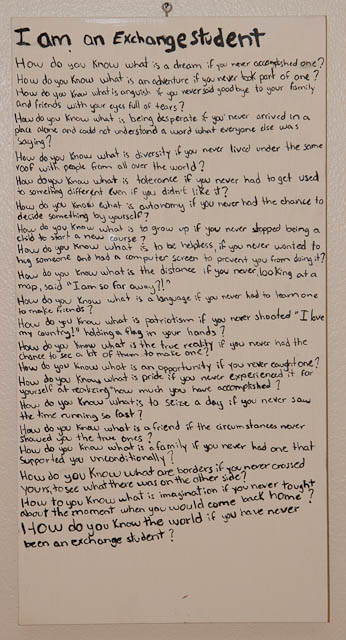 I am an Exchange student
How do you know what is a dream if you never accomplished one?
How do you know what is an adventure if you never took part of one?
How do you know what is anguish if you never said goodbye to your family
and friends with your eyes full of tears?
How do you know what is being desperate if you never arrived in a
place alone and could not understand a word what everyone else was
saying?
How do you know what is diversity if you never lived under the same
roof with people from all over the world?
How do you know what is tolerance if you never had to get used
to something different even if you didn't like it?
How do you know what is autonomy if you never had the chance to
decide something by yourself?
How do you know what is to grow up if you never stopped being a
child to start a new course?
How do you know what is to be helpless if you never wanted to
hug someone and had a computer screen to prevent you from doing it?
How do you know what is the distance if you never, looking at a
map, said "I am so far away?!"
How do you know what is a language if you never had to learn one
to make friends?
How do you know what is patriotism if you never shooted "I love
my country!" holding a flag in your hands?
How do you know what is the true reality if you never had the
chance to see a lot of them to make one?
How do you know what is an opportunity if you never caught one?
How do you know what is pride if you never experienced it for
yourself at realizing how much you have accomplished?
How do you know what is to seize a day if you never saw
the time running so fast?
How do you know what is a friend if the circumstances never
showed you the true ones?
How do you know what is a family if you never had one that
supported you unconditionally?
How do you know what are borders if you never crossed
yours, to see what there was on the other side?
How to you know what is imagination if you never tought
about the moment when you would come back home?
How do you know the world if you have never
been an exchange student?